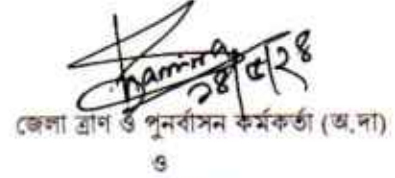 ২৪/৫/২৪
জেলা ত্রাণ ও পুনর্বাসন কর্মকর্তা (অ.দা)
ও